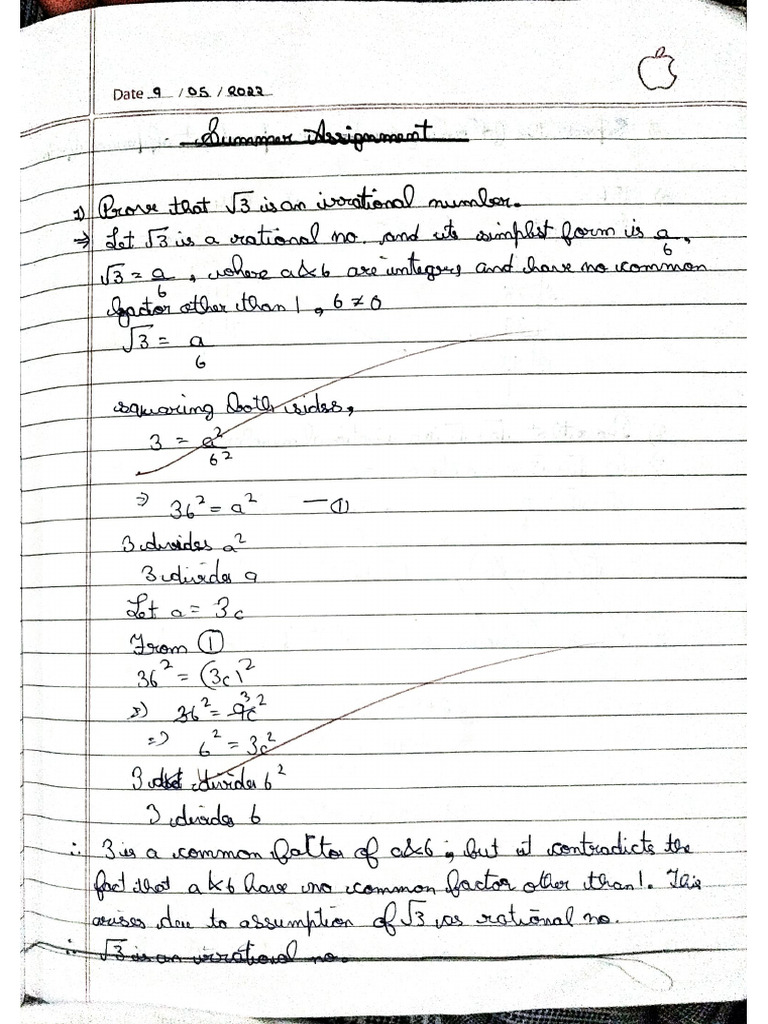 Date 9 / 05 / 2022
Summer Assignment
1) Prove that √3 is an irrational number.
⇒ Let √3 is a rational no. and its simplest form is a/b,
√3 = a/b, where a & b are integers and have no common
factor other than 1, b ≠ 0
√3 = a/b
squaring both sides,
3 = a²/b²
⇒ 3b² = a² —①
3 divides a²
3 divides a
Let a = 3c
From ①
3b² = (3c)²
⇒ 3b² = 9c² 3
⇒ b² = 3c²
3 divides b²
3 divides b
∴ 3 is a common factor of a & b, but it contradicts the
fact that a & b have no common factor other than 1. This
arises due to assumption of √3 as rational no.
∴ √3 is an irrational no.